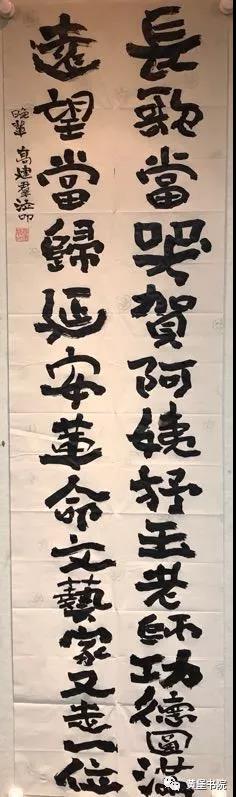 長歌當哭賀阿姨抒玉老師功德圓滿
遠望當歸延安革命文藝家又走一位
晚輩 高建群泣叩
黄堡书院